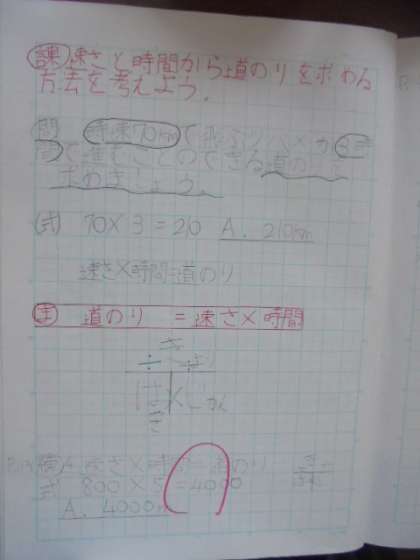 課 速さと時間から道のりを求める
方法を考えよう。
問 時速70kmで飛ぶツバメが3時
間で進むことのできる道のりを
求めましょう。
式 70×3=210 A. 210km
速さ×時間=道のり
ま 道のり = 速さ×時間
÷
×
速さ×時間=道のり
式 800×5=4000
A. 4000m